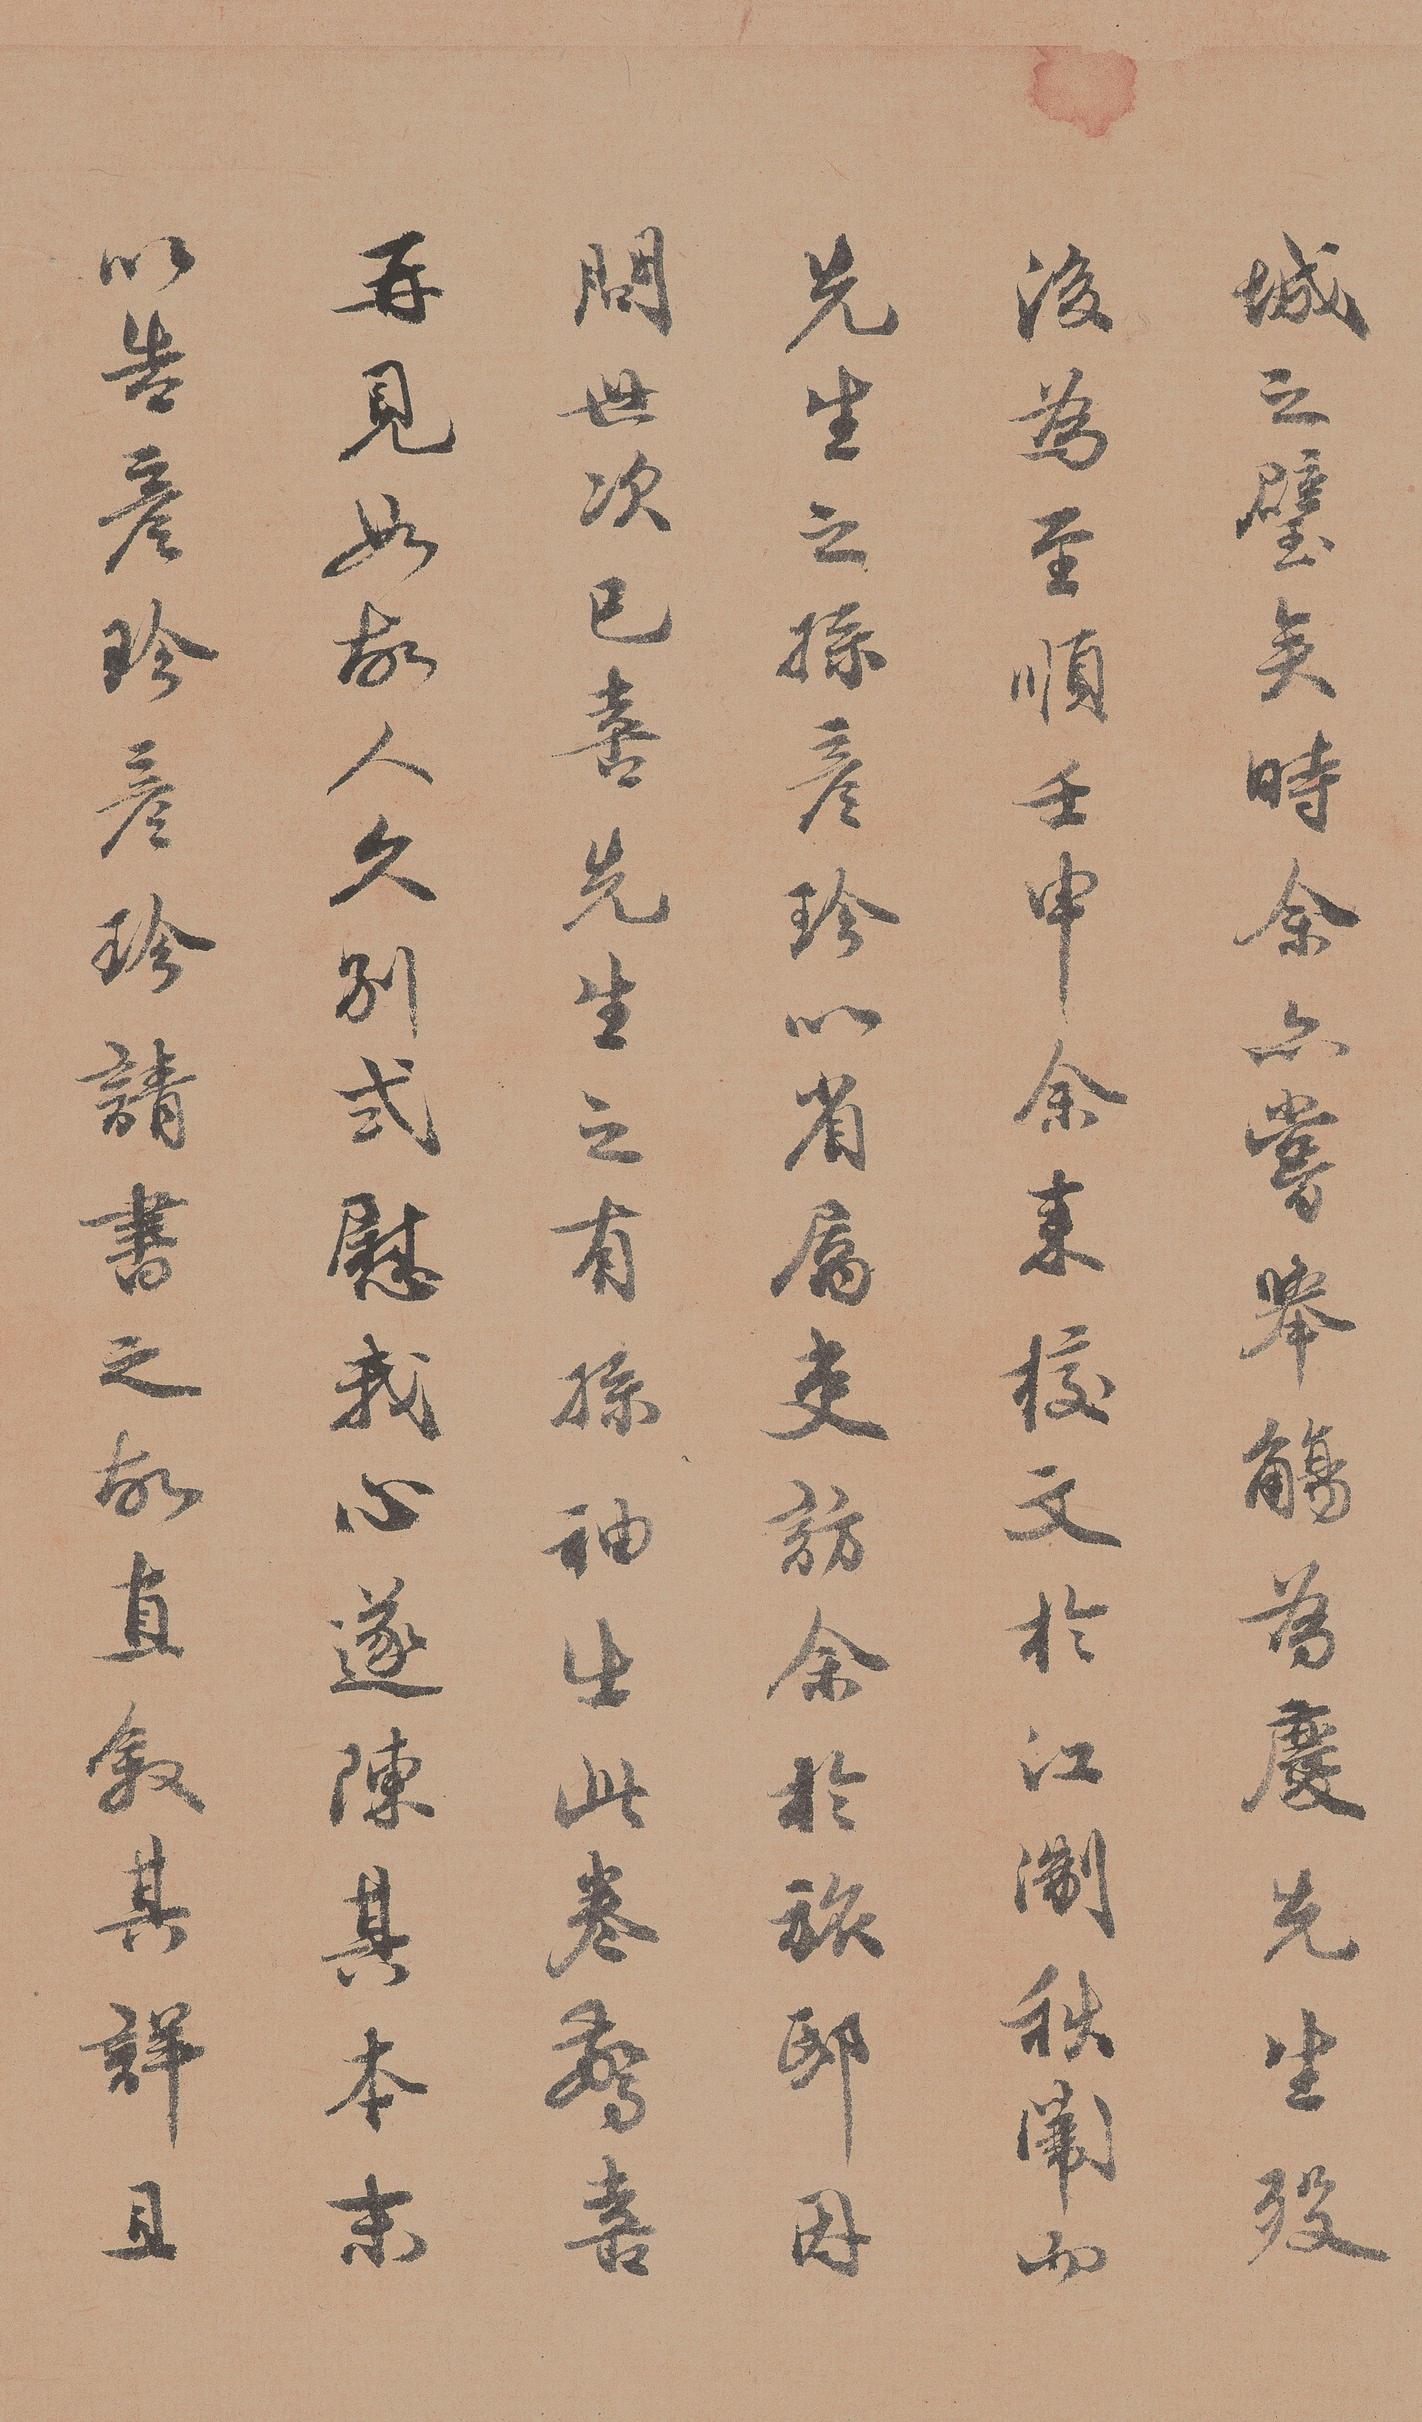 城之璧矣時余亦嘗舉觴為慶先生歿
後為至順壬申余来校文於江淛秋闈而
先生之孫彦珍以省屬吏訪余於旅邸因
問世次已喜先生之有孫袖出此卷驚喜
再見如故人久別式慰我心遂陳其本末
以告彦珍彦珍請書之故直敘其詳且